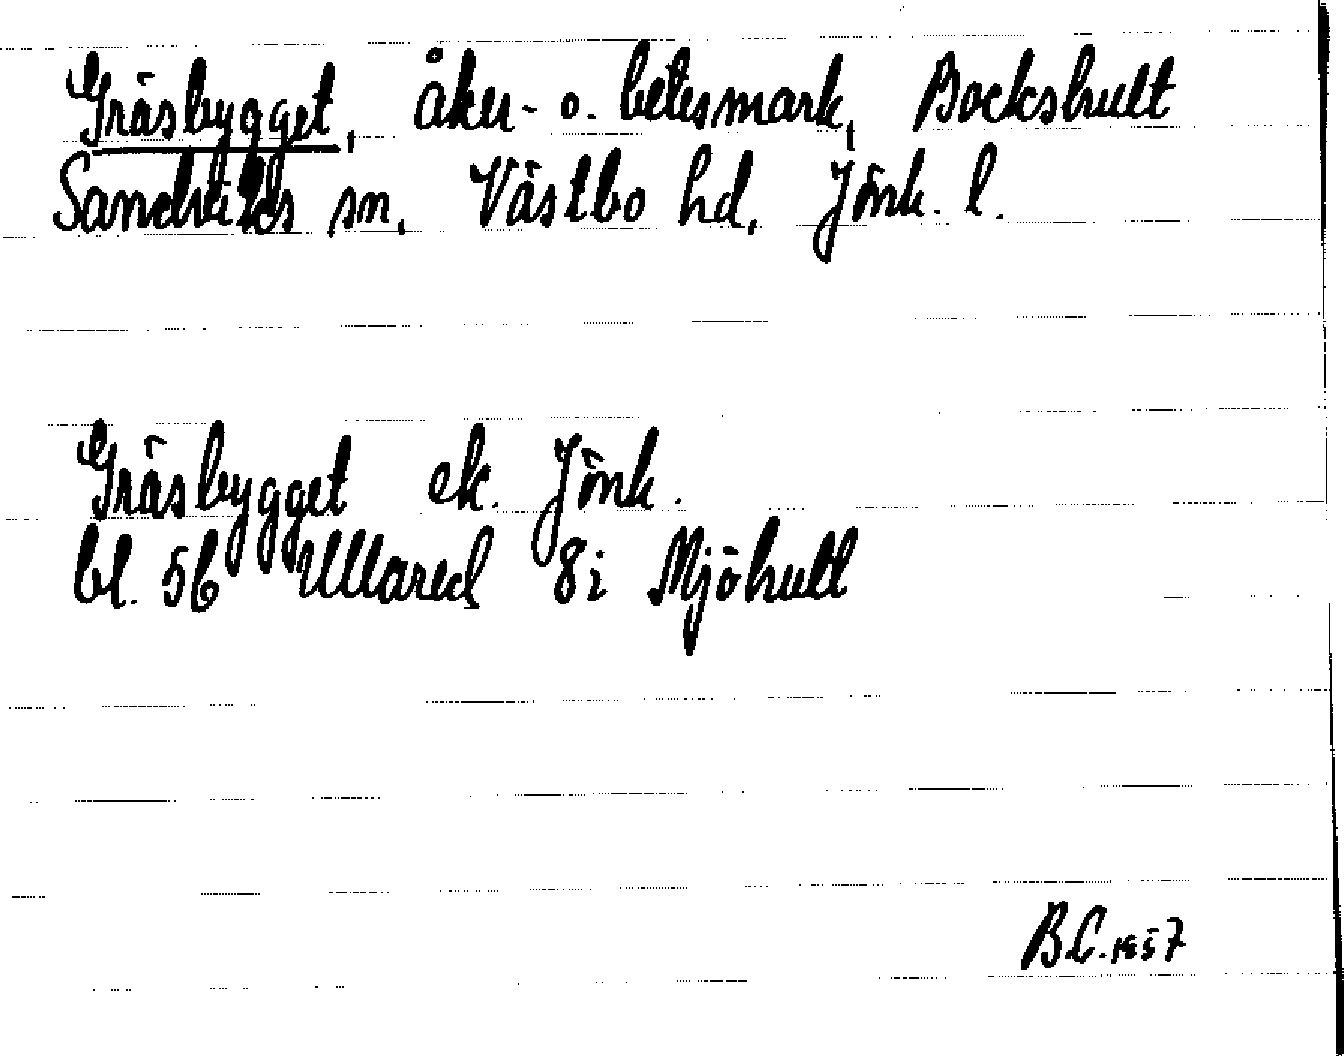 Gräsbygget, åker- o. betesmark, Bockshult
Sandviks sn. Västbo hd. Jönk. l.
Gräsbygget ek. Jönk.
bl. 5b Ullared 8i Mjöhult
B.C. 1957